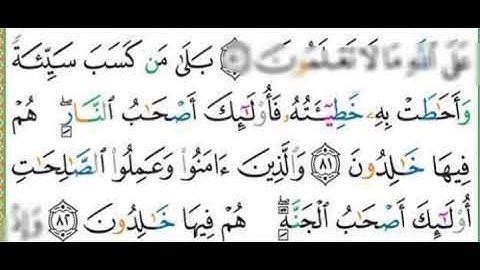 عَلَى ٱللَّهِ مَا لَا تَعْلَمُونَ ۝ بَلَىٰ مَن كَسَبَ سَيِّئَةً
وَأَحَٰطَتْ بِهِۦ خَطِيٓـَٔتُهُۥ فَأُو۟لَٰٓئِكَ أَصْحَٰبُ ٱلنَّارِ ۖ هُمْ
فِيهَا خَٰلِدُونَ ۝٨١ وَٱلَّذِينَ ءَامَنُوا۟ وَعَمِلُوا۟ ٱلصَّٰلِحَٰتِ
أُو۟لَٰٓئِكَ أَصْحَٰبُ ٱلْجَنَّةِ ۖ هُمْ فِيهَا خَٰلِدُونَ ۝٨٢ وَإِذْ